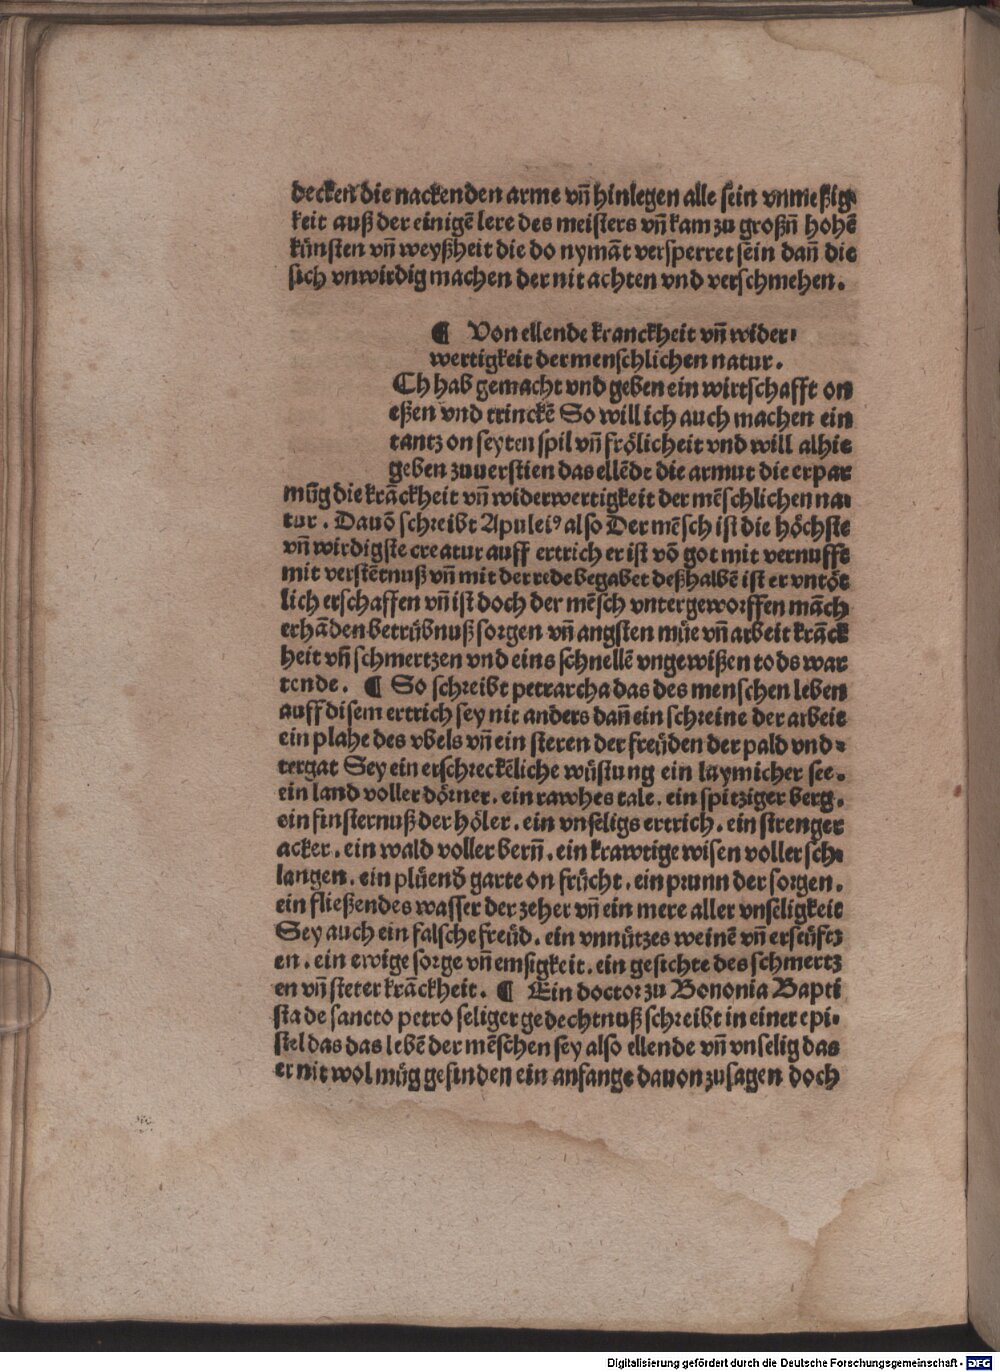 decken die nackenden arme vn̄ hinlegen alle sein vnmeßig
keit auß der einigē lere des meisters vn̄ kam zu großn̄ hohē
künsten vn̄ weyßheit die do nymāt versperret sein dan̄ die
sich vnwirdig machen der nit achten vnd verschmehen.
¶ Von ellende kranckheit vn̄ wider⸗
wertigkeit der menschlichen natur.
Ch hab gemacht vnd geben ein wirtschafft on
eßen vnd trinckē So will ich auch machen ein
tantz on seyten spil vn̄ frölicheit vnd will alhie
geben zuuerstien das ellēde die armut die erpar
mūg die krāckheit vn̄ widerwertigkeit der mēschlichen na⸗
tur. Dauō schreibt Apuleiꝰ also Der mēsch ist die höchste
vn̄ wirdigste creatur auff ertrich er ist vō got mit vernufft
mit verstētnuß vn̄ mit der rede begabet deßhalbē ist er vntöt
lich erschaffen vn̄ ist doch der mēsch vntergeworffen māch
erhāden betrübnuß sorgen vn̄ angsten müe vn̄ arbeit krāck
heit vn̄ schmertzen vnd eins schnellē vngewißen tods war
tende. ¶ So schreibt petrarcha das des menschen leben
auff disem ertrich sey nit anders dan̄ ein schreine der arbeit
ein plahe des vbels vn̄ ein steren der freüden der pald vnd⸗
tergat Sey ein erschreckēliche wüstung ein laymicher see.
ein land voller dörner. ein rawhes tale. ein spitziger berg.
ein finsternuß der höler. ein vnseligs ertrich. ein strenger
acker. ein wald voller bern̄. ein krawtige wisen voller sch⸗
langen. ein plüend̄ garte on frücht. ein prunn der sorgen.
ein fließendes wasser der zeher vn̄ ein mere aller vnseligkeit
Sey auch ein falsche freüd. ein vnnützes weinē vn̄ erseüftz
en. ein ewige sorge vn̄ emsigkeit. ein gesichte des schmertz
en vn̄ steter krāckheit. ¶ Ein doctor zu Bononia Bapti
sta de sancto petro seliger gedechtnuß schreibt in einer epi⸗
stel das das lebē der mēschen sey also ellende vn̄ vnselig das
er nit wol müg gefinden ein anfange dauon zusagen doch
Digitalisierung gefördert durch die Deutsche Forschungsgemeinschaft - DFG